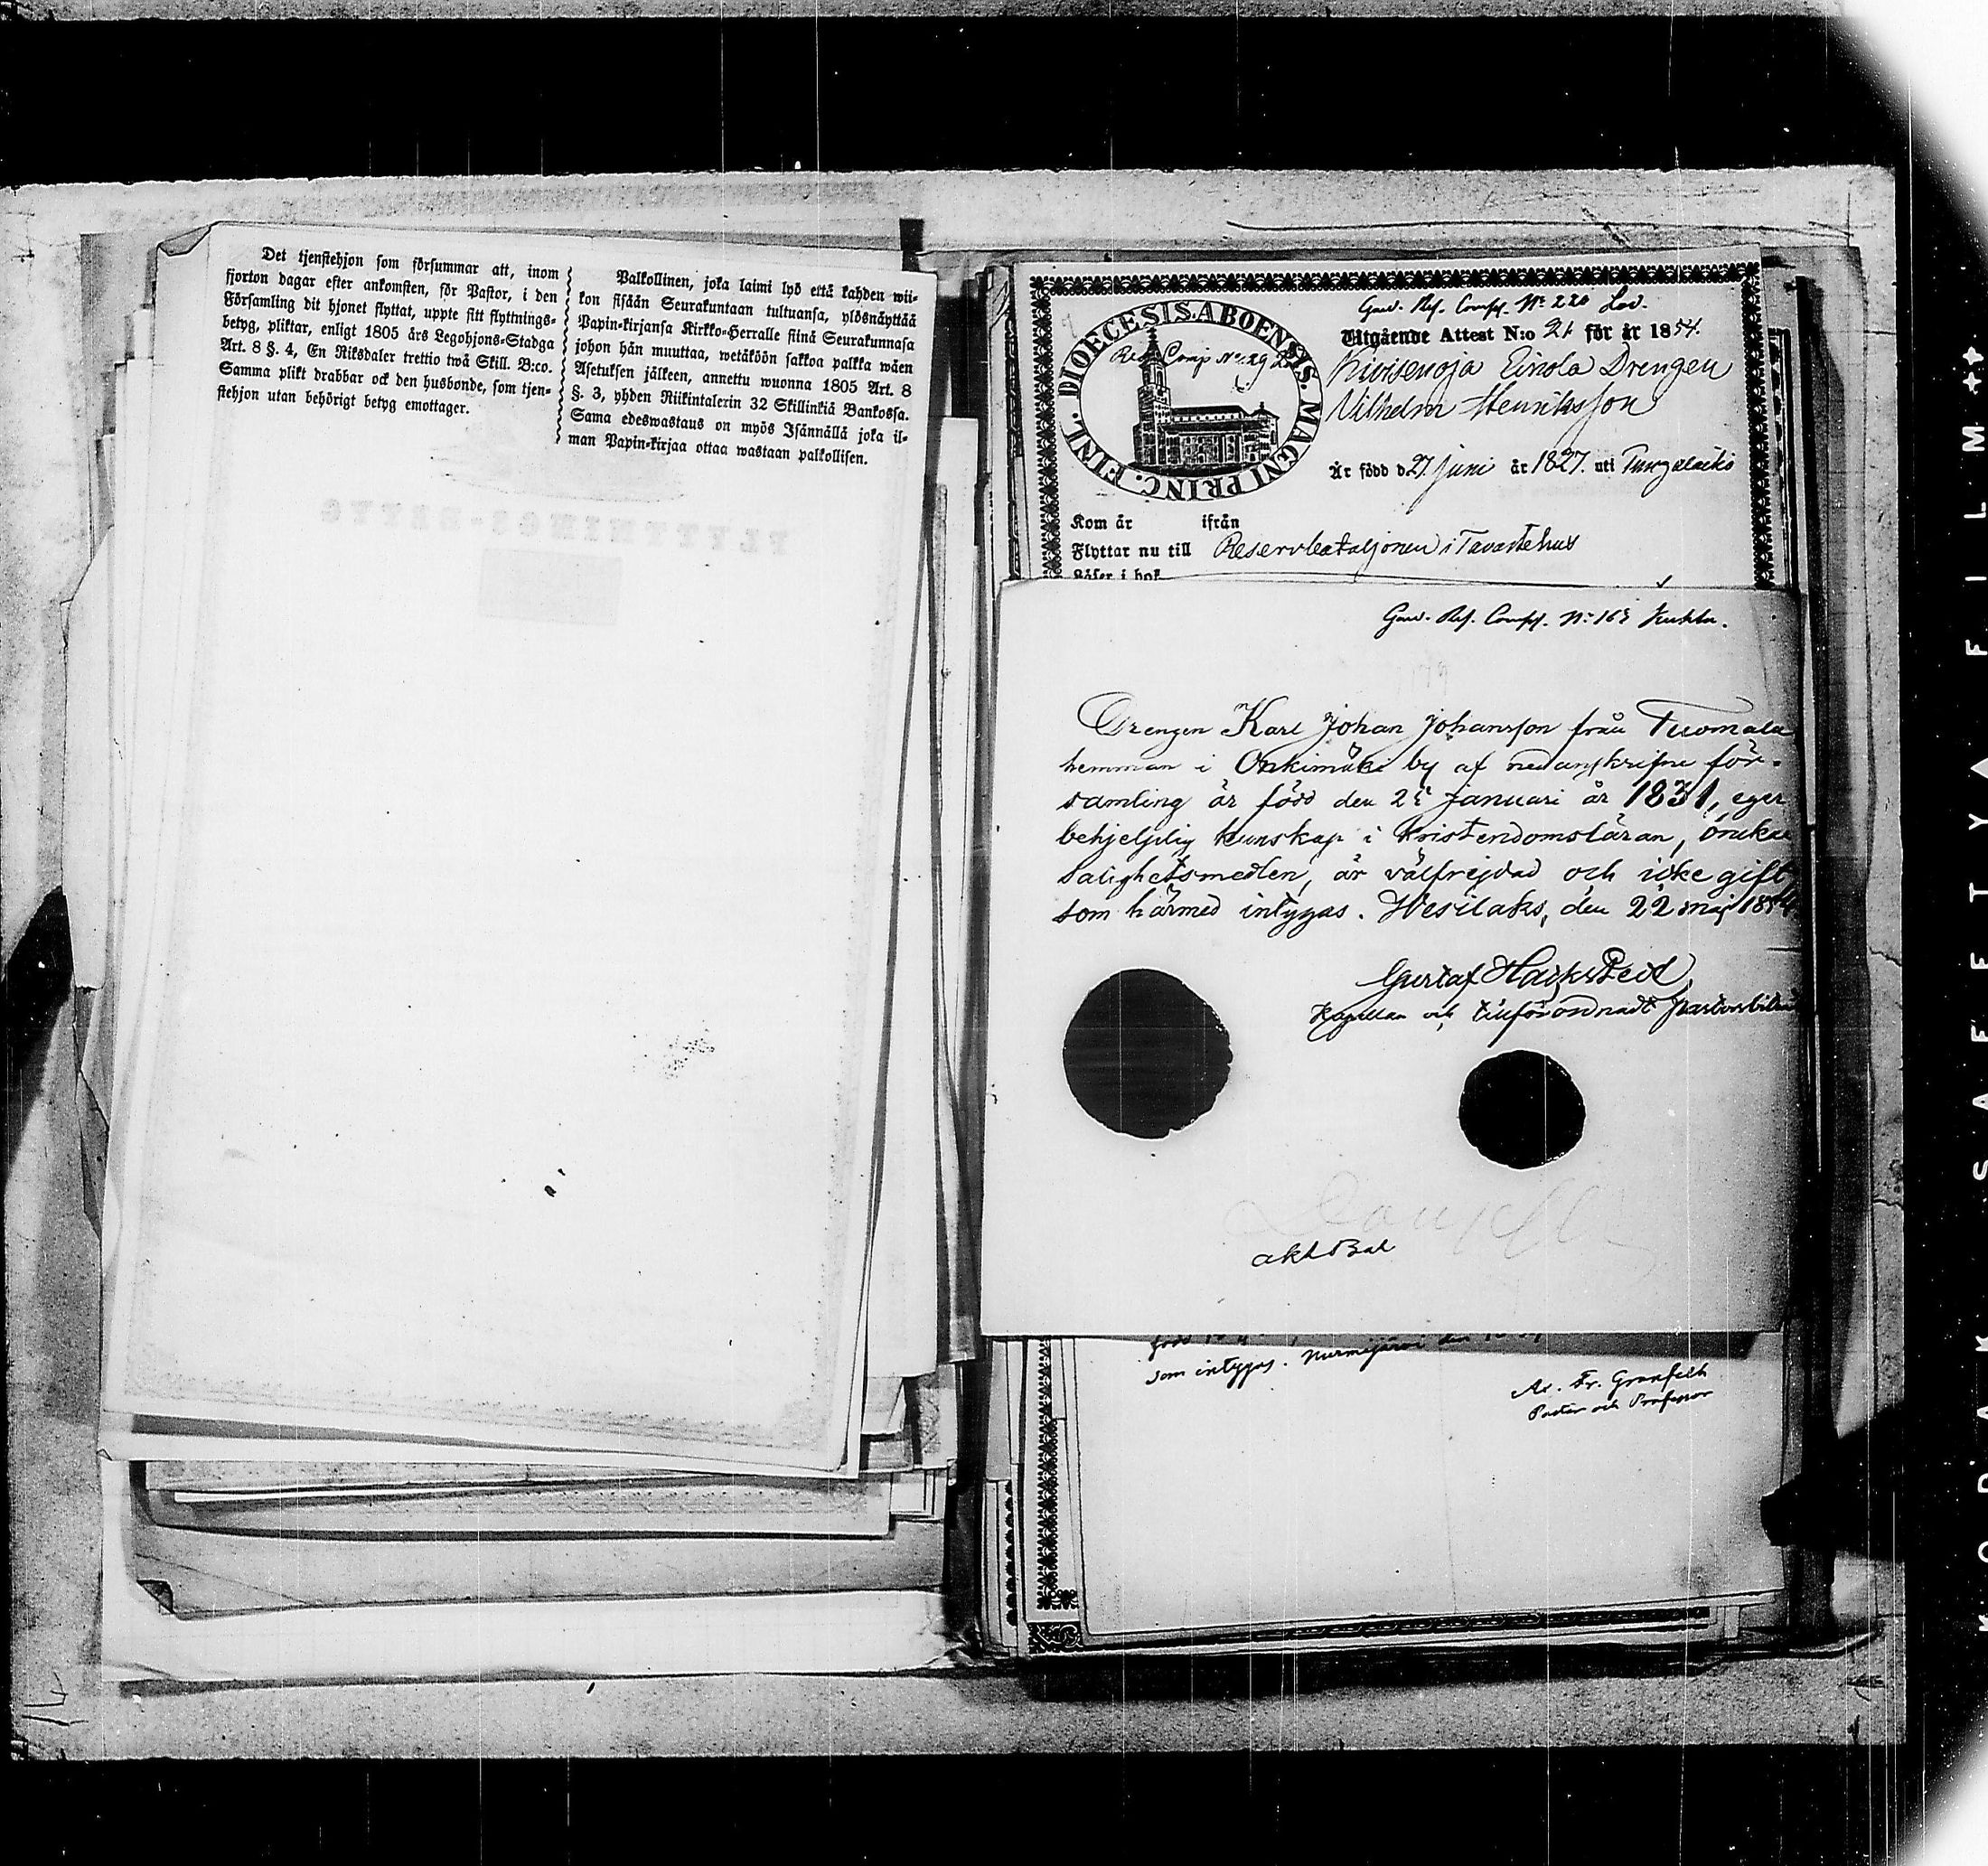 Det tjenstehjon som försummar att, inom
fjorton dagar efter ankomsten, för Pastor, i den
Församling dit hjonet flyttat, uppte sitt flyttnings-
betyg, pliktar, enligt 1805 års Legohjons-Stadga
Art. 8 §. 4, En Riksdaler trettio twå Skill. B:co.
Samma plikt drabbar ock den husbonde, som tjen-
stehjon utan behörigt betyg emottager.
Palkollinen, joka laimi lyö että kahden wii-
kon sisään Seurakuntaan tultuansa, ylösnäyttää
Papin-kirjansa Kirkko-Herralle siinä Seurakunnasa
johon hän muuttaa, wetäköön sakkoa palkka wäen
Asetuksen jälkeen, annettu wuonna 1805 Art. 8
§. 3, yhden Riikintalerin 32 Skillinkiä Bankossa.
Sama edeswastaus on myös Isännällä joka il-
man Papin-kirjaa ottaa wastaan palkollisen.
DIOECESIS. ABOENSIS. MAGNI PRINC. FINL.
N:o 220
Utgående Attest N:o 21 för år 1854.
Drengen
Vilhelm Henriksson
Är född d. 27 Juni år 1827. uti
Kom år ifrån
Flyttar nu till Reservbataljonen i Tavastehus
Läser i bok
Drengen Karl Johan Johansson från Tuomala
hemman i Onkimäki by af nedanskrifne för-
samling är född den januari år 1831, eger
behjelplig kunskap i kristendomsläran,
salighetsmedlen, är välfrejdad och icke gift
som härmed intygas. Wesilaks, den 22 maj 1854
Gustaf
Kapellan och
som intygas. Nurmijärvi den
Fr. Granfelt
Pastor och Professor
KODAK SAFETY FILM